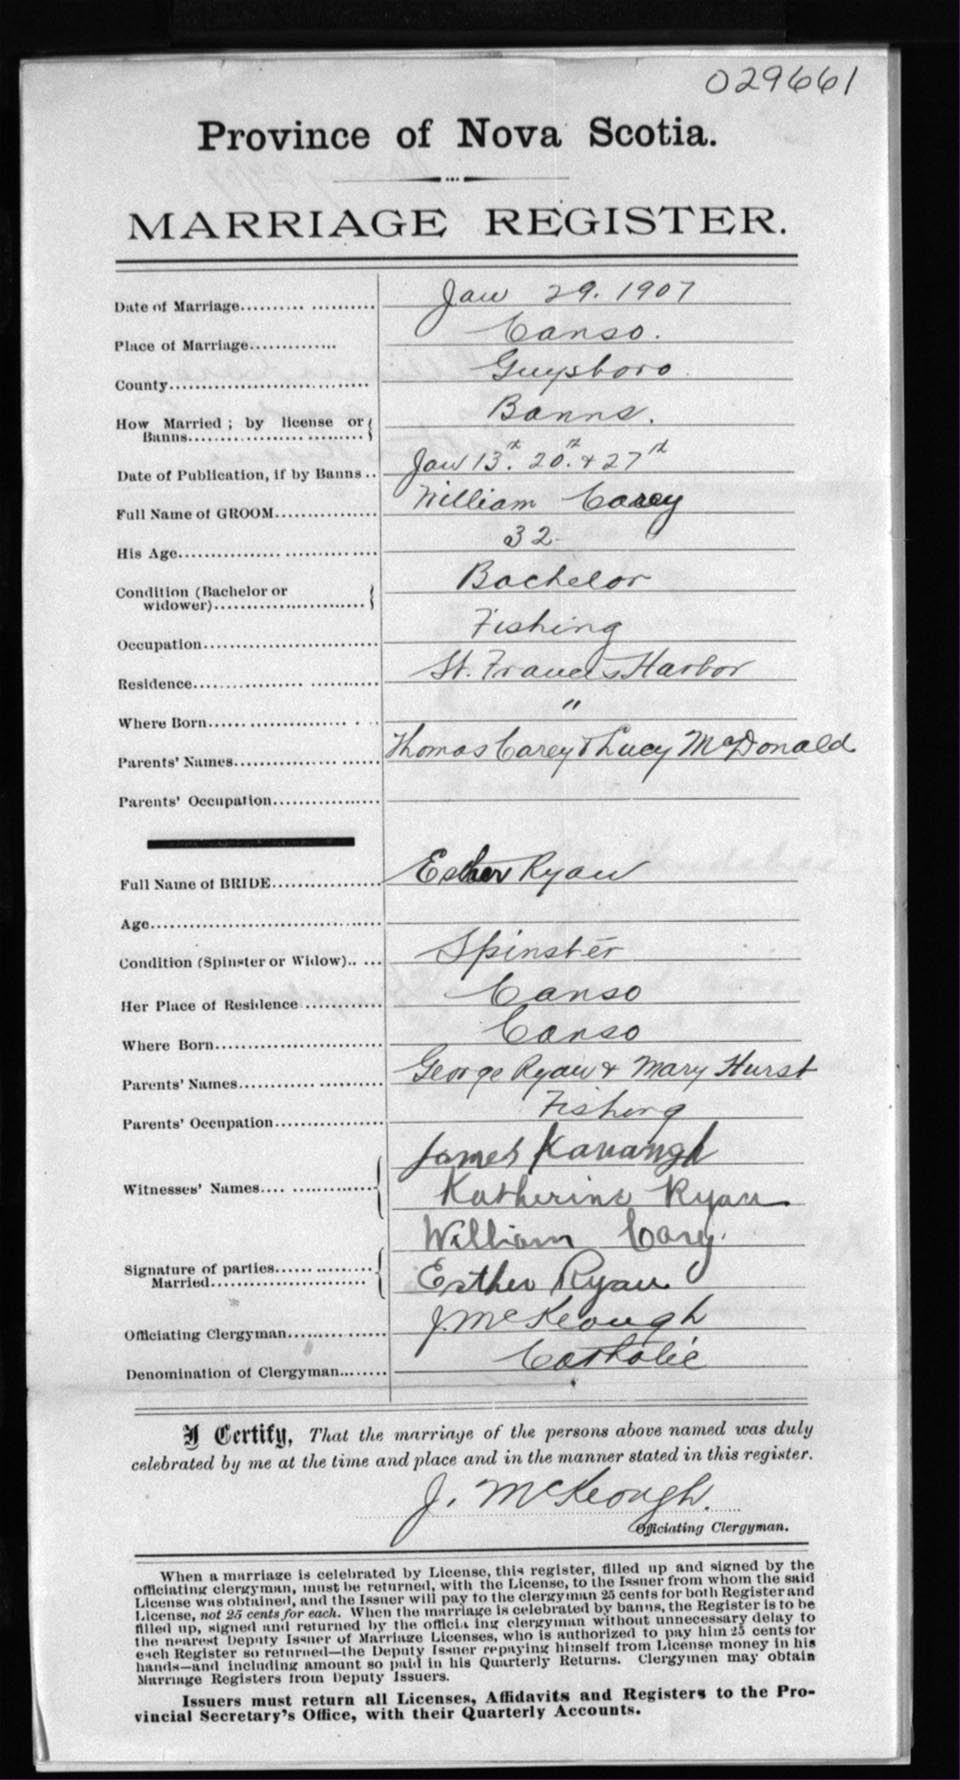 029661
Province of Nova Scotia.
MARRIAGE REGISTER.
Date of Marriage.......... Jan 29. 1907
Place of Marriage.......... Canso.
County.......... Guysboro.
How Married ; by license or
Banns.......... Banns.
Date of Publication, if by Banns .. Jan 13th. 20th. & 27th
Full Name of GROOM.......... William Carey
His Age.......... 32
Condition (Bachelor or
widower).......... Bachelor
Occupation.......... Fishing
Residence.......... St. Francis Harbor
Where Born.......... "
Parents' Names.......... Thomas Carey & Lucy McDonald
Parents' Occupation..........
Full Name of BRIDE.......... Esther Ryan
Age..........
Condition (Spinster or Widow).. .... Spinster
Her Place of Residence.......... Canso
Where Born.......... Canso
Parents' Names.......... George Ryan & Mary Hurst
Parents' Occupation.......... Fishing
James Kavangh
Witnesses' Names.... .......... Katherine Ryan
William Cary.
Signature of parties..........
Married.......... Esther Ryan
Officiating Clergyman.......... J. McKeough
Denomination of Clergyman.......... Catholic
I Certify, That the marriage of the persons above named was duly
celebrated by me at the time and place and in the manner stated in this register.
J. McKeough.
Officiating Clergyman.
When a marriage is celebrated by License, this register, filled up and signed by the
officiating clergyman, must be returned, with the License, to the Issuer from whom the said
License was obtained, and the Issuer will pay to the clergyman 25 cents for both Register and
License, not 25 cents for each. When the marriage is celebrated by banns, the Register is to be
filled up, signed and returned by the officia ing clergyman without unnecessary delay to
the nearest Deputy Issuer of Marriage Licenses, who is authorized to pay him 25 cents for
each Register so returned—the Deputy Issuer repaying himself from License money in his
hands—and including amount so paid in his Quarterly Returns. Clergymen may obtain
Marriage Registers from Deputy Issuers.
Issuers must return all Licenses, Affidavits and Registers to the Pro-
vincial Secretary's Office, with their Quarterly Accounts.